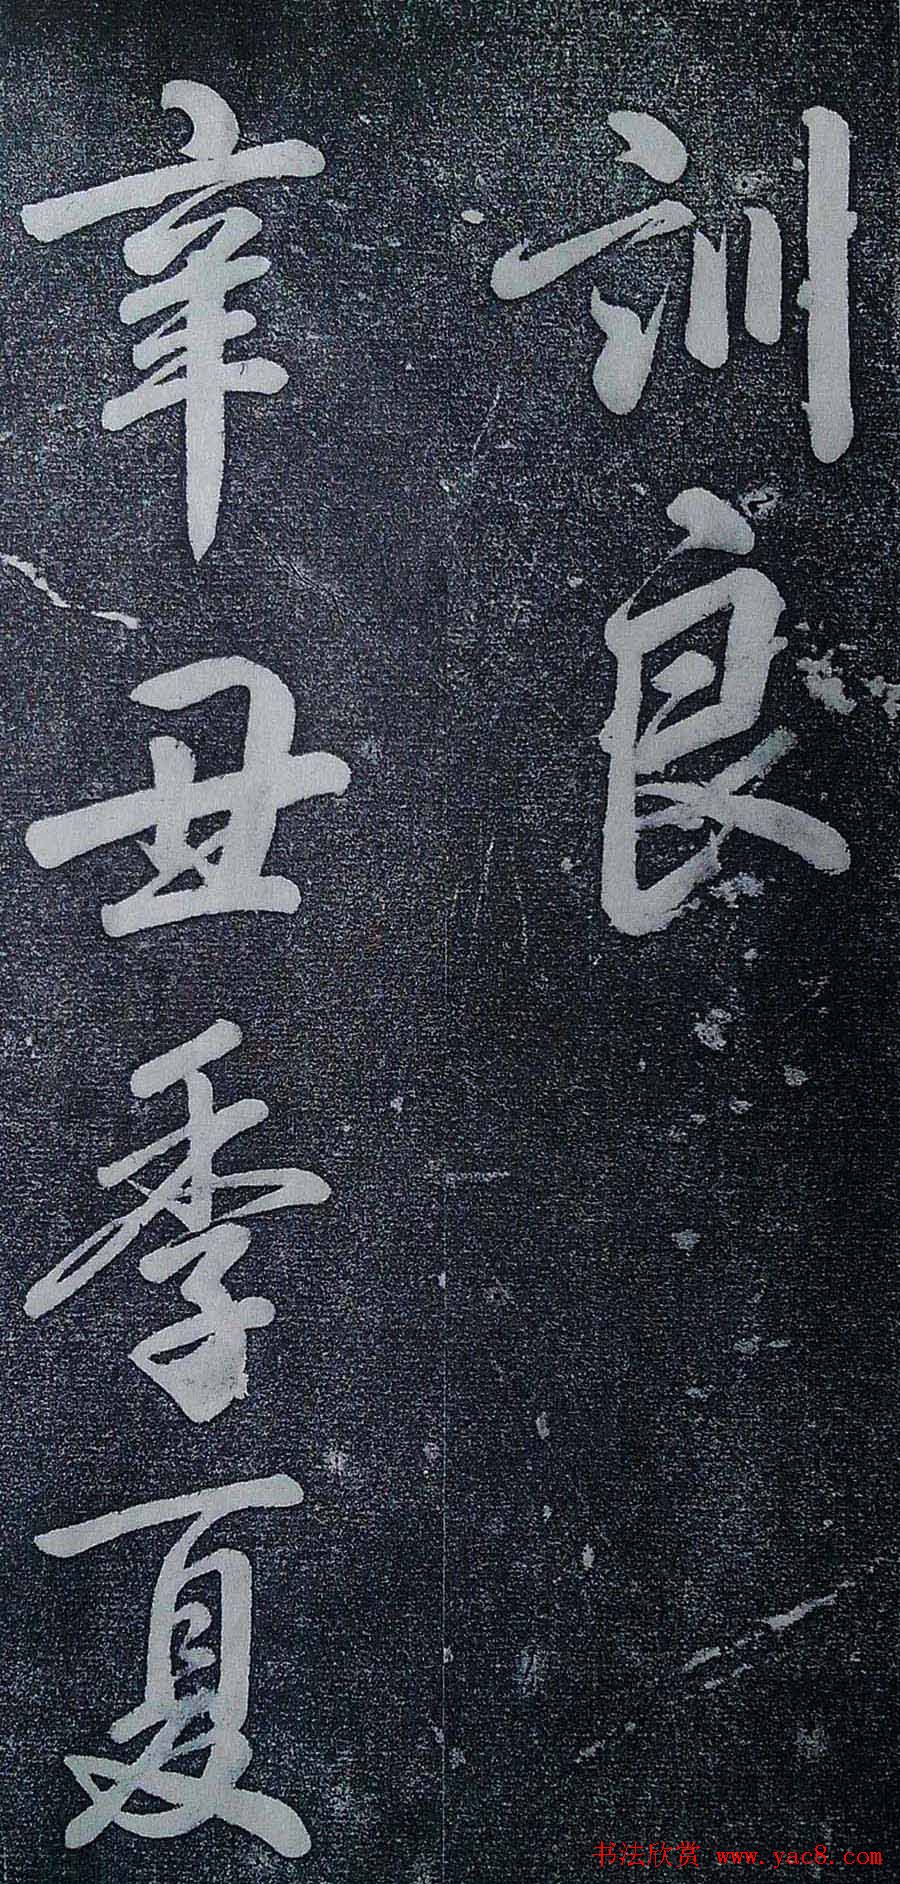 训良
辛丑季夏
书法欣赏 www.yac8.com